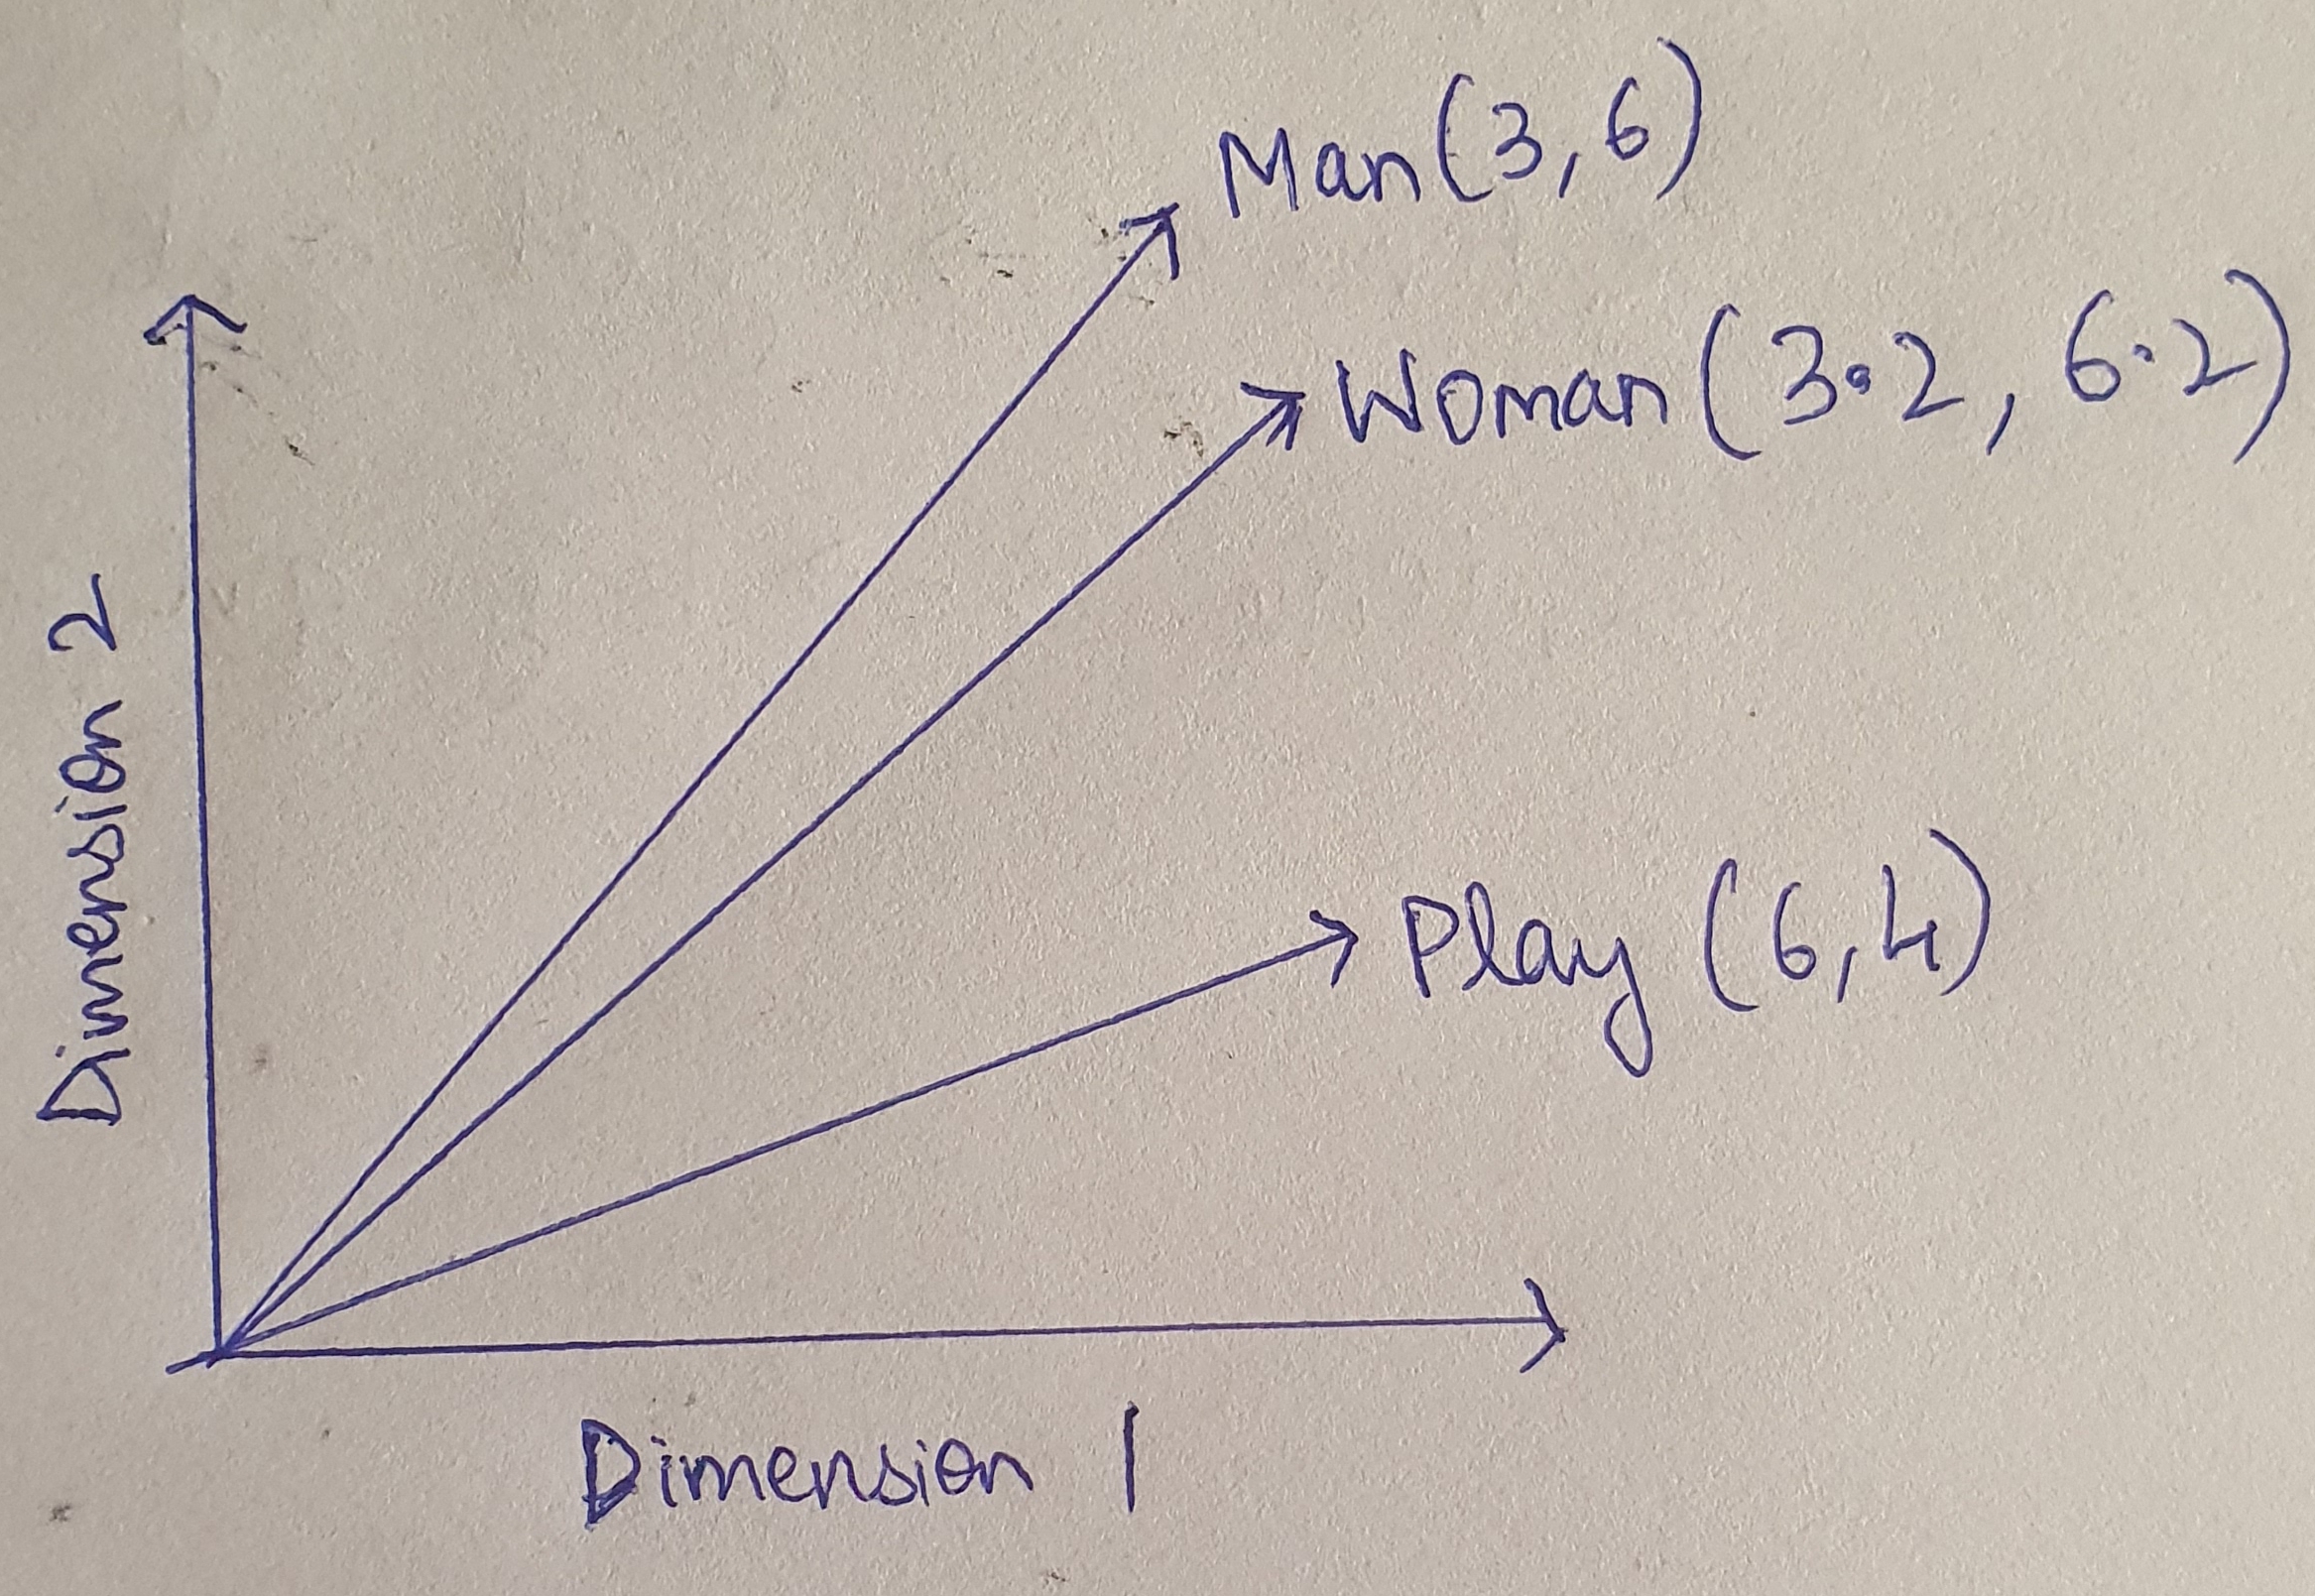 Man (3, 6)
Woman (3.2, 6.2)
Play (6, 4)
Dimension 2
Dimension 1